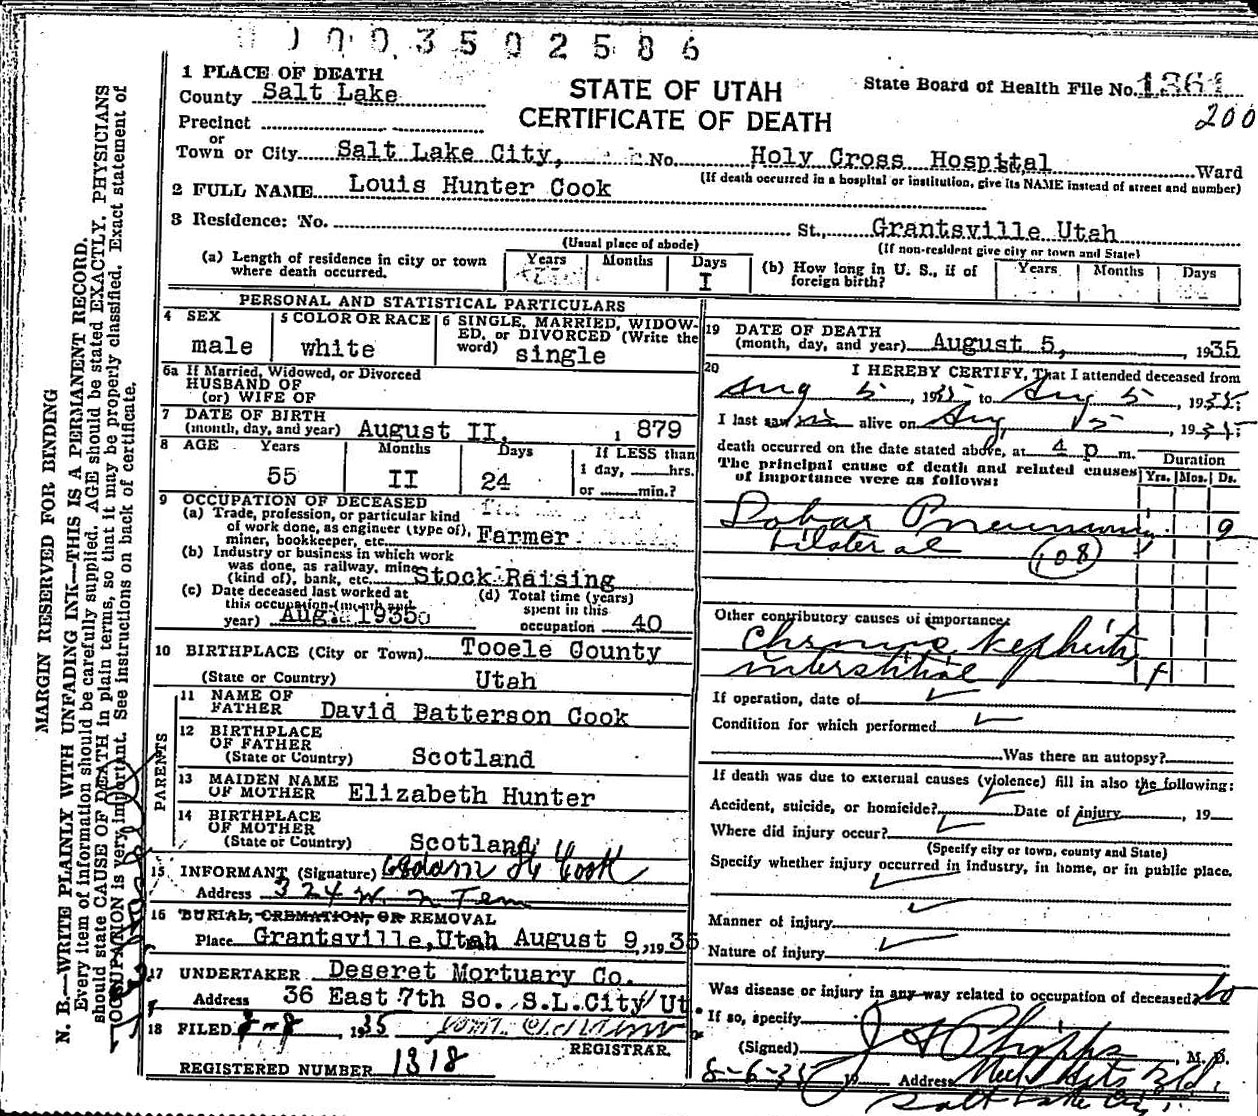 0003502586
1 PLACE OF DEATH
County Salt Lake
STATE OF UTAH
CERTIFICATE OF DEATH
State Board of Health File No. 1361
200
Precinct
or
Town or City Salt Lake City, No. Holy Cross Hospital Ward
(If death occurred in a hospital or institution, give its NAME instead of street and number)
2 FULL NAME Louis Hunter Cook
3 Residence: No. St., Grantsville Utah
(Usual place of abode) (If non-resident give city or town and State)
(a) Length of residence in city or town where death occurred. Years Months Days I
(b) How long in U. S., if of foreign birth? Years Months Days
PERSONAL AND STATISTICAL PARTICULARS
4 SEX male
5 COLOR OR RACE white
6 SINGLE, MARRIED, WIDOWED, or DIVORCED (Write the word) single
6a If Married, Widowed, or Divorced
HUSBAND OF
(or) WIFE OF
7 DATE OF BIRTH
(month, day, and year) August II, 1879
8 AGE Years 55 Months II Days 24
If LESS than
1 day, hrs.
or min.?
9 OCCUPATION OF DECEASED
(a) Trade, profession, or particular kind
of work done, as engineer (type of),
miner, bookkeeper, etc. Farmer
(b) Industry or business in which work
was done, as railway, mine
(kind of), bank, etc. Stock Raising
(c) Date deceased last worked at
this occupation (month and
year) Aug. 1935
(d) Total time (years)
spent in this
occupation 40
10 BIRTHPLACE (City or Town) Tooele County
(State or Country) Utah
PARENTS
11 NAME OF
FATHER David Batterson Cook
12 BIRTHPLACE
OF FATHER
(State or Country) Scotland
13 MAIDEN NAME
OF MOTHER Elizabeth Hunter
14 BIRTHPLACE
OF MOTHER
(State or Country) Scotland
15 INFORMANT (Signature) Adam H Cook
Address 324 W. N Tem
16 BURIAL, CREMATION, OR REMOVAL
Place Grantsville, Utah August 9, 1935
17 UNDERTAKER Deseret Mortuary Co.
Address 36 East 7th So. S.L.City Ut
18 FILED 8-8 1935
REGISTRAR.
REGISTERED NUMBER 1318
19 DATE OF DEATH
(month, day, and year) August 5, 1935
20 I HEREBY CERTIFY, That I attended deceased from
Aug 5, 1935 to Aug 5, 1935
I last saw him alive on Aug 5, 1935
death occurred on the date stated above, at 4 p m.
The principal cause of death and related causes
of importance were as follows:
Duration
Yrs. Mos. Ds.
Lobar Pneumonia 9
bilateral 108
Other contributory causes of importance:
Chronic Nephritis
interstitial
If operation, date of
Condition for which performed
Was there an autopsy?
If death was due to external causes (violence) fill in also the following:
Accident, suicide, or homicide? Date of injury, 19
Where did injury occur?
(Specify city or town, county and State)
Specify whether injury occurred in industry, in home, or in public place.
Manner of injury
Nature of injury
Was disease or injury in any way related to occupation of deceased? No
If so, specify
(Signed) J A Phipps, M. D.
8-6-35 19 Address Med Arts Bld.
Salt Lake City
MARGIN RESERVED FOR BINDING
N. B.—WRITE PLAINLY WITH UNFADING INK—THIS IS A PERMANENT RECORD.
Every item of information should be carefully supplied. AGE should be stated EXACTLY. PHYSICIANS
should state CAUSE OF DEATH in plain terms, so that it may be properly classified. Exact statement of
OCCUPATION is very important. See instructions on back of certificate.